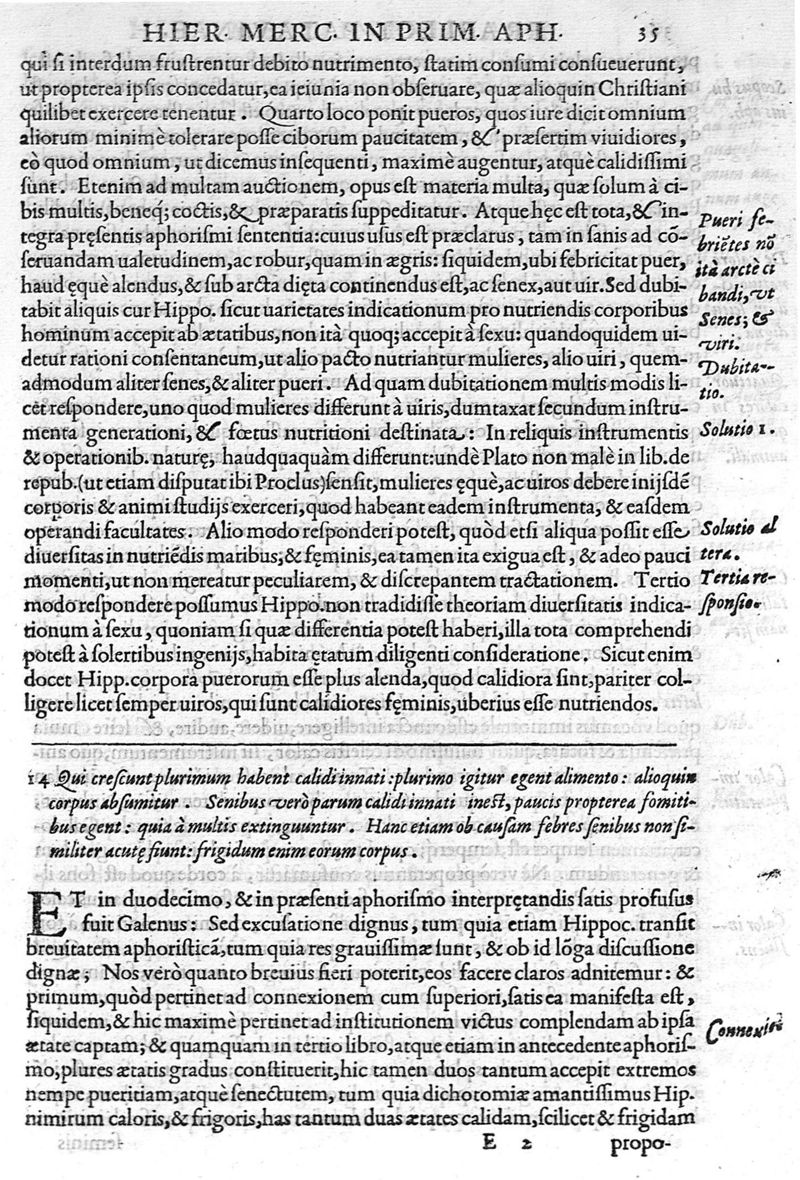 HIER. MERC. IN PRIM. APH. 35
qui si interdum frustrentur debito nutrimento, statim consumi consueuerunt,
ut propterea ipsis concedatur, ea ieiunia non obseruare, quæ alioquin Christiani
quilibet exercere tenentur. Quarto loco ponit pueros, quos iure dicit omnium
aliorum minimè tolerare posse ciborum paucitatem, & præsertim uiuidiores,
eò quod omnium, ut dicemus insequenti, maximè augentur, atquè calidissimi
sunt. Etenim ad multam auctionem, opus est materia multa, quæ solum à ci-
bis multis, beneq; coctis, & præparatis suppeditatur. Atque hęc est tota, & in-
tegra pręsentis aphorismi sententia: cuius usus est præclarus, tam in sanis ad cō-
seruandam ualetudinem, ac robur, quam in ægris: siquidem, ubi febricitat puer,
haud ęquè alendus, & sub arcta dięta continendus est, ac senex, aut uir. Sed dubi-
tabit aliquis cur Hippo. sicut uarietates indicationum pro nutriendis corporibus
hominum accepit ab ætatibus, non ità quoq; accepit à sexu: quandoquidem ui-
detur rationi consentaneum, ut alio pacto nutriantur mulieres, alio uiri, quem-
admodum aliter senes, & aliter pueri. Ad quam dubitationem multis modis li-
cet respondere, uno quod mulieres differunt à uiris, dumtaxat secundum instru-
menta generationi, & fœtus nutritioni destinata: In reliquis instrumentis
& operationib. naturę, haudquaquàm differunt: undè Plato non malè in lib. de
repub. (ut etiam disputat ibi Proclus) sensit, mulieres ęquè, ac uiros debere inijsdē
corporis & animi studijs exerceri, quod habeant eadem instrumenta, & easdem
operandi facultates. Alio modo responderi potest, quòd etsi aliqua possit esse
diuersitas in nutriēdis maribus, & fęminis, ea tamen ita exigua est, & adeo pauci
momenti, ut non mereatur peculiarem, & discrepantem tractationem. Tertio
modo respondere possumus Hippo. non tradidisse theoriam diuersitatis indica-
tionum à sexu, quoniam si quæ differentia potest haberi, illa tota comprehendi
potest à solertibus ingenijs, habita ętatum diligenti consideratione. Sicut enim
docet Hipp. corpora puerorum esse plus alenda, quod calidiora sint, pariter col-
ligere licet semper uiros, qui sunt calidiores fęminis, uberius esse nutriendos.
Pueri fe-
briētes nō
ità arctè ci
bandi, ut
Senes; &
viri.
Dubita-
tio.
Solutio 1.
Solutio al
tera.
Tertia re-
sponsio.
14 Qui crescunt plurimum habent calidi innati: plurimo igitur egent alimento: alioquin
corpus absumitur. Senibus verò parum calidi innati inest, paucis propterea fomiti-
bus egent: quia à multis extinguuntur. Hanc etiam ob causam febres senibus non si-
militer acutę fiunt: frigidum enim eorum corpus.
ET in duodecimo, & in præsenti aphorismo interprętandis satis profusus
fuit Galenus: Sed excusatione dignus, tum quia etiam Hippoc. transit
breuitatem aphoristicā, tum quia res grauissimæ sunt, & ob id lōga discussione
dignæ; Nos verò quanto breuius fieri poterit, eos facere claros adnitemur: &
primum, quòd pertinet ad connexionem cum superiori, satis ea manifesta est,
siquidem, & hic maximè pertinet ad institutionem victus complendam ab ipsa
ætate captam; & quamquam in tertio libro, atque etiam in antecedente aphoris-
mo, plures ætatis gradus constituerit, hic tamen duos tantum accepit extremos
nempe pueritiam, atquè senectutem, tum quia dichotomiæ amantissimus Hip.
nimirum caloris, & frigoris, has tantum duas ætates calidam, scilicet & frigidam
Connexio
E 2 propo-